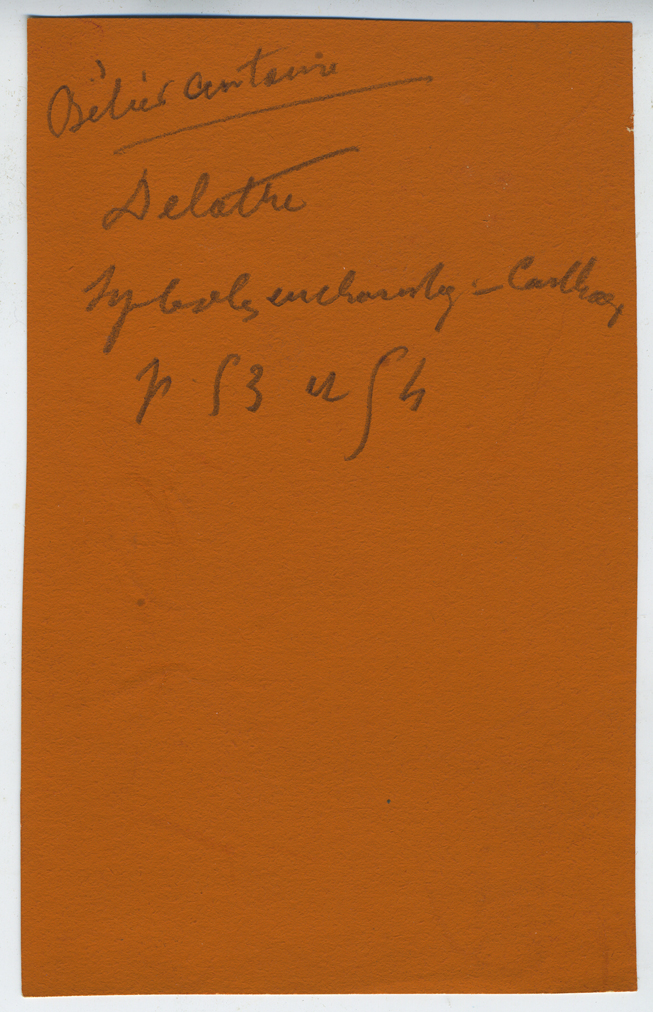 Bélier centaure
Delattre
Symboles eucharistiq – Carthage
p 53 et 54